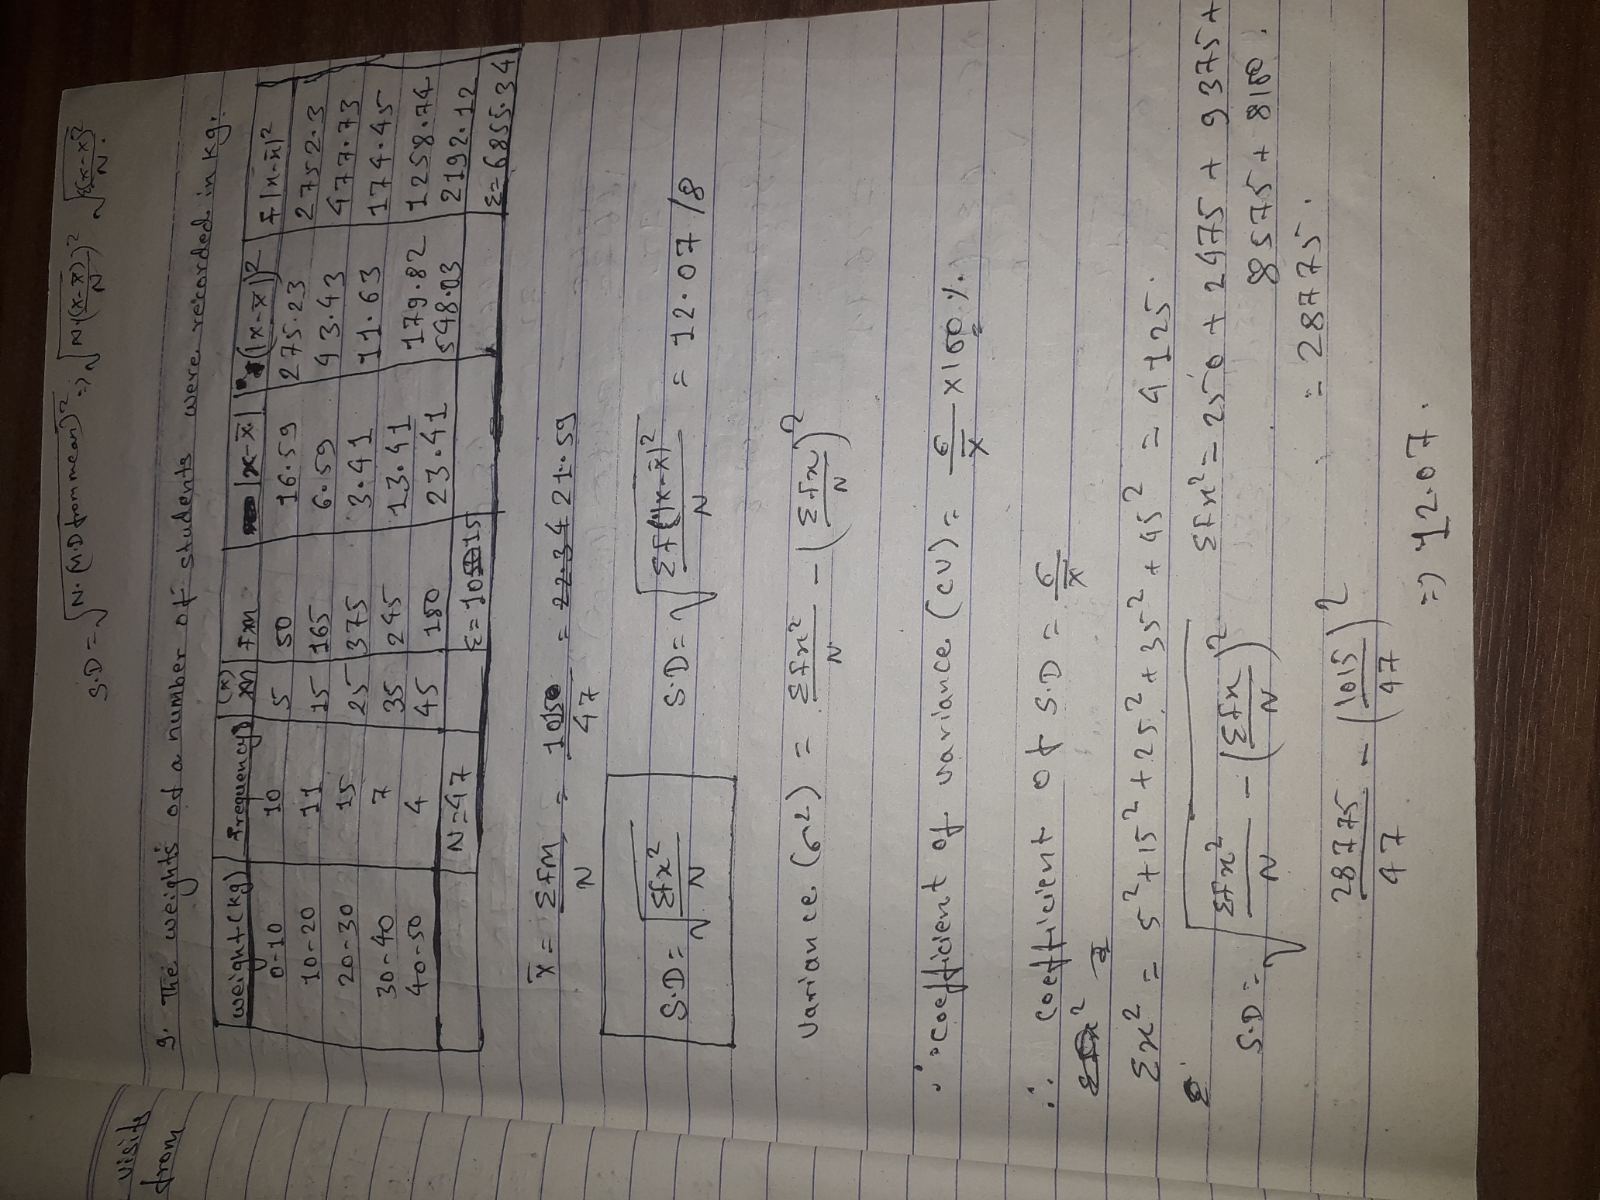 S.D = √N·(M.D from mean)² => √N×(x-x̄)²/N, √Σ(x-x̄)²/N.
9. The weights of a number of students were recorded in kg.
weight(kg) frequency (x) m fxm |x-x̄| (|x-x̄|)² f|x-x̄|²
0-10 10 5 50 16.59 275.23 2752.3
10-20 11 15 165 6.59 43.43 477.73
20-30 15 25 375 3.41 11.63 174.45
30-40 7 35 245 13.41 179.82 1258.74
40-50 4 45 180 23.41 548.03 2192.12
N=47 Σ=1015 Σ=6855.34
x̄ = ΣfM/N = 1015/47 = 21.59
S.D = √Σfx²/N S.D = √Σf(|x-x̄|²/N = 12.07/8
Variance (σ²) = Σfx²/N - (Σfx/N)²
∴ Coefficient of variance (CV) = σ/x̄ × 100%.
∴ coefficient of S.D = σ/x
Σx² = 5² + 15² + 25² + 35² + 45² = 4125.
Σfx² = 250 + 2475 + 9375 +
8575 + 8100.
S.D = √Σfx²/N - (Σfx/N)² = 28775.
28775/47 - (1015/47)²
=> 12.07.
visits
from